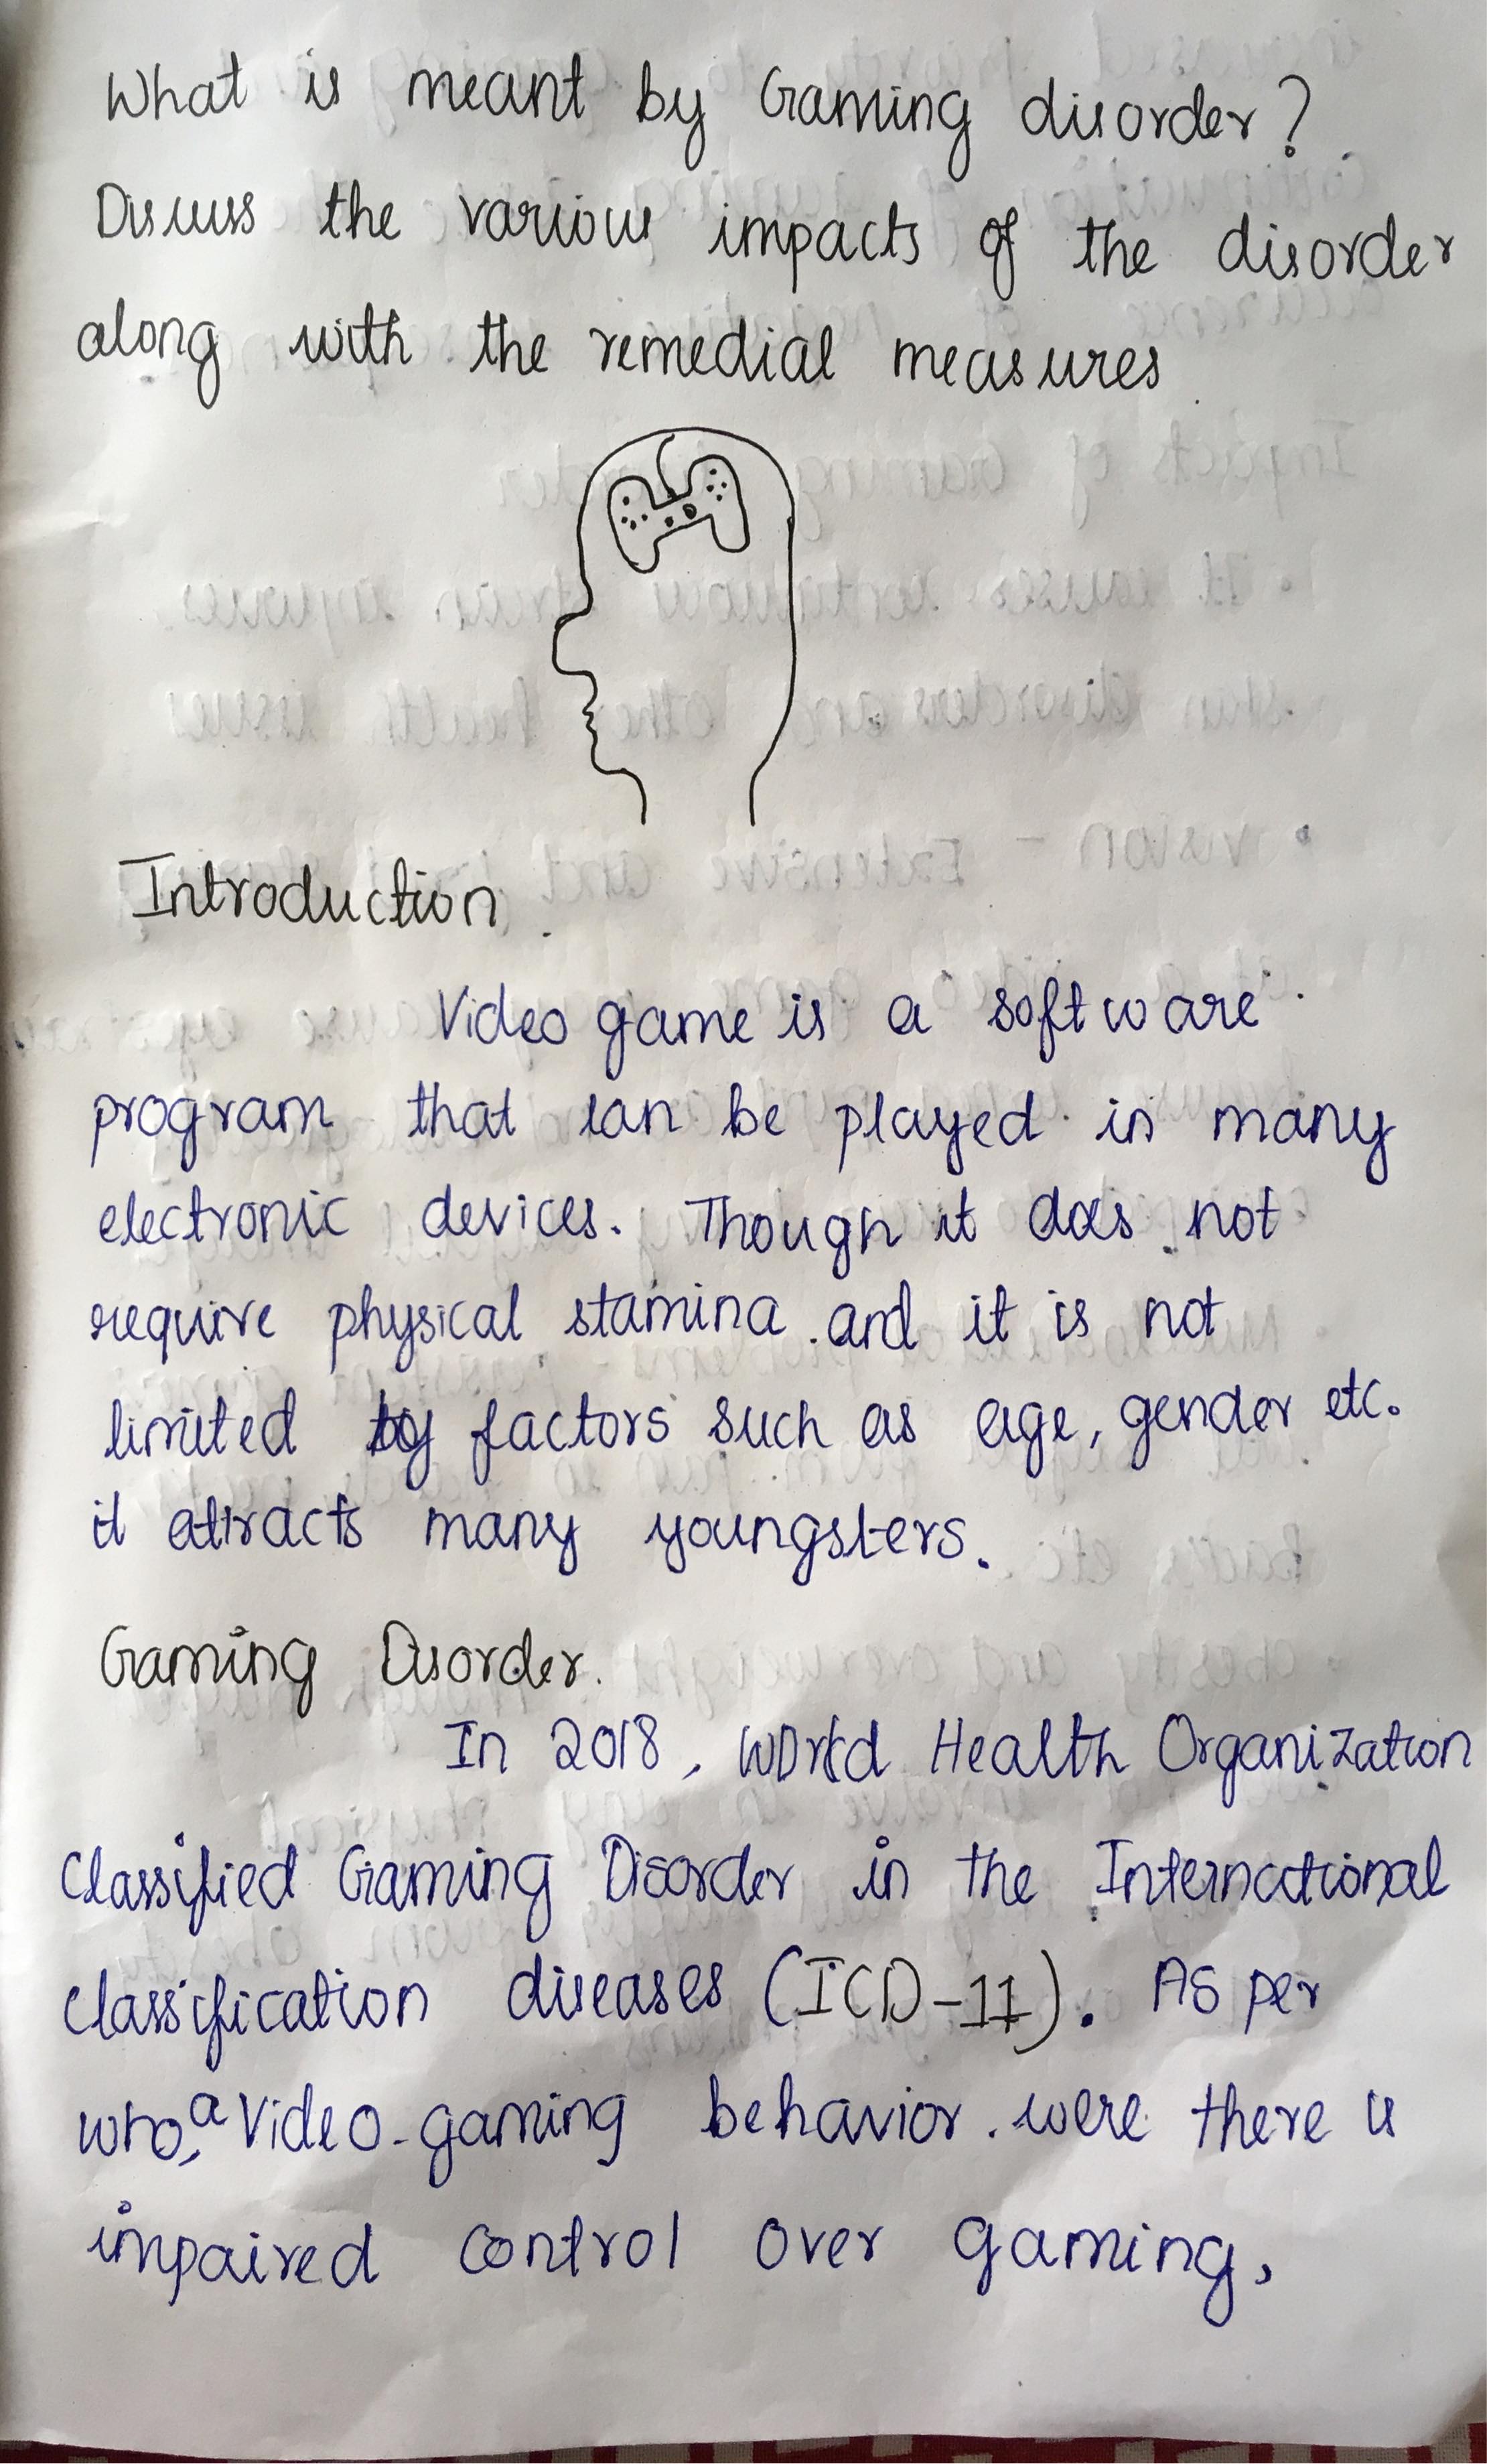 What is meant by Gaming disorder?
Discuss the various impacts of the disorder
along with the remedial measures.
Introduction.
Video game is a software
program that can be played in many
electronic devices. Though it does not
require physical stamina and it is not
limited by factors such as age, gender etc.
it attracts many youngsters.
Gaming Disorder.
In 2018, World Health Organization
Classified Gaming Disorder in the International
classification diseases (ICD-11). As per
who, a Video-gaming behavior were there is
impaired control over gaming,